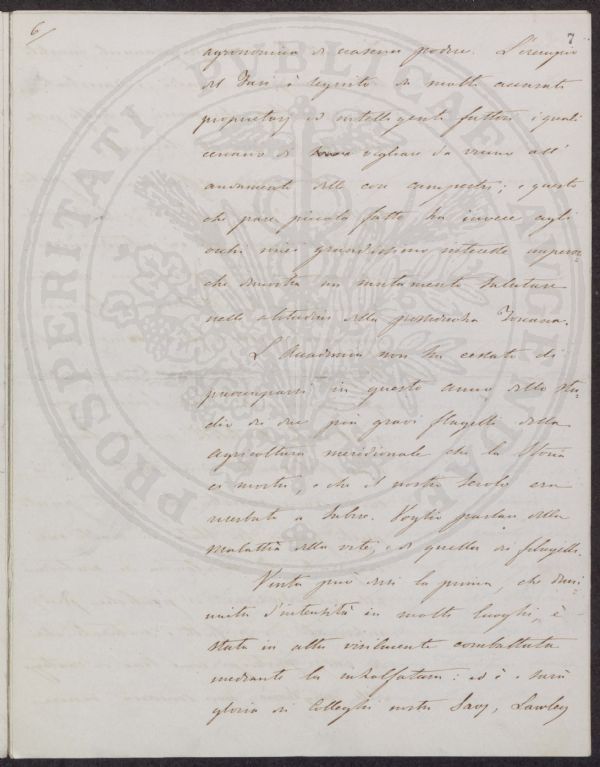 6
7
agronomica di ciascun podere. L'esempio
del Fusi è seguito da molti
proprietarj ed intelligenti fattori i quali
cercano di vigilare da vicino all'
andamento delle cose campestri; e questo
che pare piccolo fatto ha invece agli
occhi miei grandissimo interesse impero-
chè dimostra un mutamento salutare
nelle abitudini della possidenza Toscana.
L'Accademia non ha cessato di
preoccuparsi in questo anno dello stu-
dio dei due più gravi flagelli della
agricoltura meridionale che la Storia
ci mostri, e che il nostro secolo era
riserbato a subire. Voglio parlare della
malattia della vite, e di quella dei filugelli.
Vinta può dirsi la prima, che dimi
nuita d'intensità in molti luoghi, è
stata in altri virilmente combattuta
mediante la insolfatura: ed è e sarà
gloria dei Colleghi nostri Lawley
PROSPERITATI PUBLICAE AUGENDAE